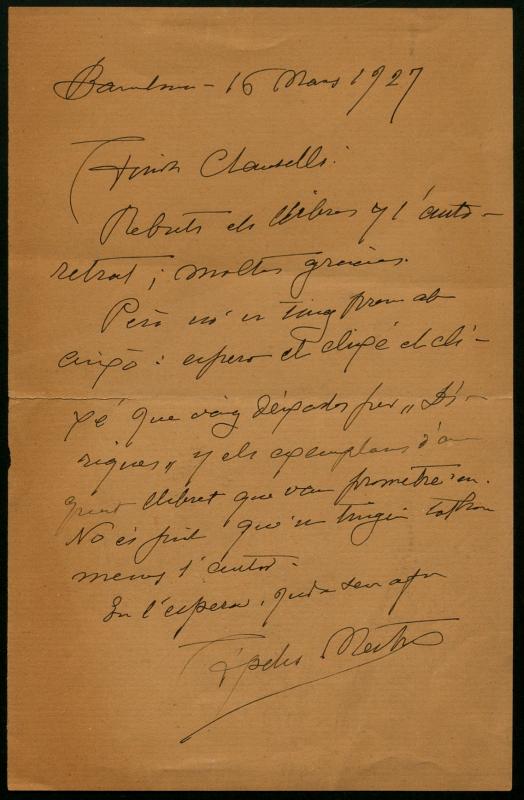 Barcelona - 16 Mars 1927
Amich Clausells:
Rebuts els llibres y l'auto-
retrat; moltes gracias.
Però no'n ting prou ab
això: espero el clixé el cli-
xé que vaig deixados per "Li-
riques" y els exemplars d'a
quest llibret que van prometre'm.
No es just qu'en tingui tothom
menos l'autor.
En l'espera, queda seu afm
Apeles Mestres